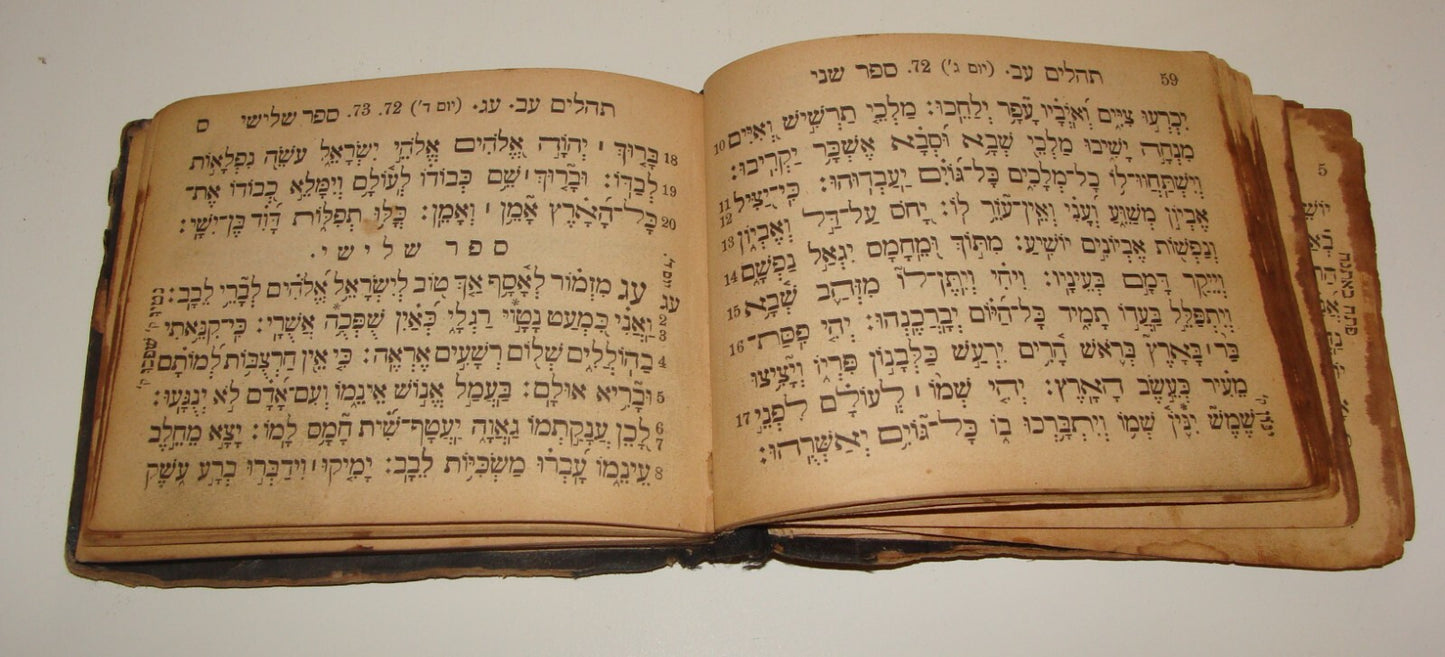 59 תהלים עב. (יום ג') 72. ספר שני
יִכְרְעוּ צִיִּים וְאֹיְבָיו עָפָר יְלַחֵכוּ׃ מַלְכֵי תַרְשִׁישׁ וְאִיִּים 10
מִנְחָה יָשִׁיבוּ מַלְכֵי שְׁבָא וּסְבָא אֶשְׁכָּר יַקְרִיבוּ׃
וְיִשְׁתַּחֲווּ־לוֹ כָל־מְלָכִים כָּל־גּוֹיִם יַעַבְדוּהוּ׃ כִּי־יַצִּיל 11 12
אֶבְיוֹן מְשַׁוֵּעַ וְעָנִי וְאֵין־עֹזֵר לוֹ׃ יָחֹס עַל־דַּל וְאֶבְיוֹן 13
וְנַפְשׁוֹת אֶבְיוֹנִים יוֹשִׁיעַ׃ מִתּוֹךְ וּמֵחָמָס יִגְאַל נַפְשָׁם 14
וְיֵיקַר דָּמָם בְּעֵינָיו׃ וִיחִי וְיִתֶּן־לוֹ מִזְּהַב שְׁבָא 15
וְיִתְפַּלֵּל בַּעֲדוֹ תָמִיד כָּל־הַיּוֹם יְבָרְכֶנְהוּ׃ יְהִי פִסַּת־ 16
בַּר׀ בָּאָרֶץ בְּרֹאשׁ הָרִים יִרְעַשׁ כַּלְּבָנוֹן פִּרְיוֹ וְיָצִיצוּ
מֵעִיר כְּעֵשֶׂב הָאָרֶץ׃ יְהִי שְׁמוֹ׀ לְעוֹלָם לִפְנֵי־ 17
שֶׁמֶשׁ יִנִּין שְׁמוֹ וְיִתְבָּרְכוּ בוֹ כָּל־גּוֹיִם יְאַשְּׁרֻהוּ׃
תהלים עב. עג. (יום ד') 72. 73. ספר שלישי ס
18 בָּרוּךְ׀ יְהוָה אֱלֹהִים אֱלֹהֵי יִשְׂרָאֵל עֹשֵׂה נִפְלָאוֹת
19 לְבַדּוֹ׃ וּבָרוּךְ׀ שֵׁם כְּבוֹדוֹ לְעוֹלָם וְיִמָּלֵא כְבוֹדוֹ אֶת־
20 כָּל־הָאָרֶץ אָמֵן׀ וְאָמֵן׃ כָּלּוּ תְפִלּוֹת דָּוִד בֶּן־יִשָׁי׃
ספר שלישי.
יום ד'.
עג עג מִזְמוֹר לְאָסָף אַךְ טוֹב לְיִשְׂרָאֵל אֱלֹהִים לְבָרֵי לֵבָב׃
2 3 וַאֲנִי כִּמְעַט נָטָוּי רַגְלָי כְּאַיִן שֻׁפְּכֻה אֲשֻׁרָי׃ כִּי־קִנֵּאתִי
4 בַּהוֹלְלִים שְׁלוֹם רְשָׁעִים אֶרְאֶה׃ כִּי אֵין חַרְצֻבּוֹת לְמוֹתָם
5 וּבָרִיא אוּלָם׃ בַּעֲמַל אֱנוֹשׁ אֵינֵמוֹ וְעִם־אָדָם לֹא יְנֻגָּעוּ׃
6 7 לָכֵן עֲנָקַתְמוֹ גַאֲוָה יַעֲטָף־שִׁית חָמָס לָמוֹ׃ יָצָא מֵחֵלֶב
8 עֵינֵמוֹ עָבְרוּ מַשְׂכִּיּוֹת לֵבָב׃ יָמִיקוּ׀ וִידַבְּרוּ בְרָע עֹשֶׁק
נטיו ק' שפכו ק'
5
פתח באתנח